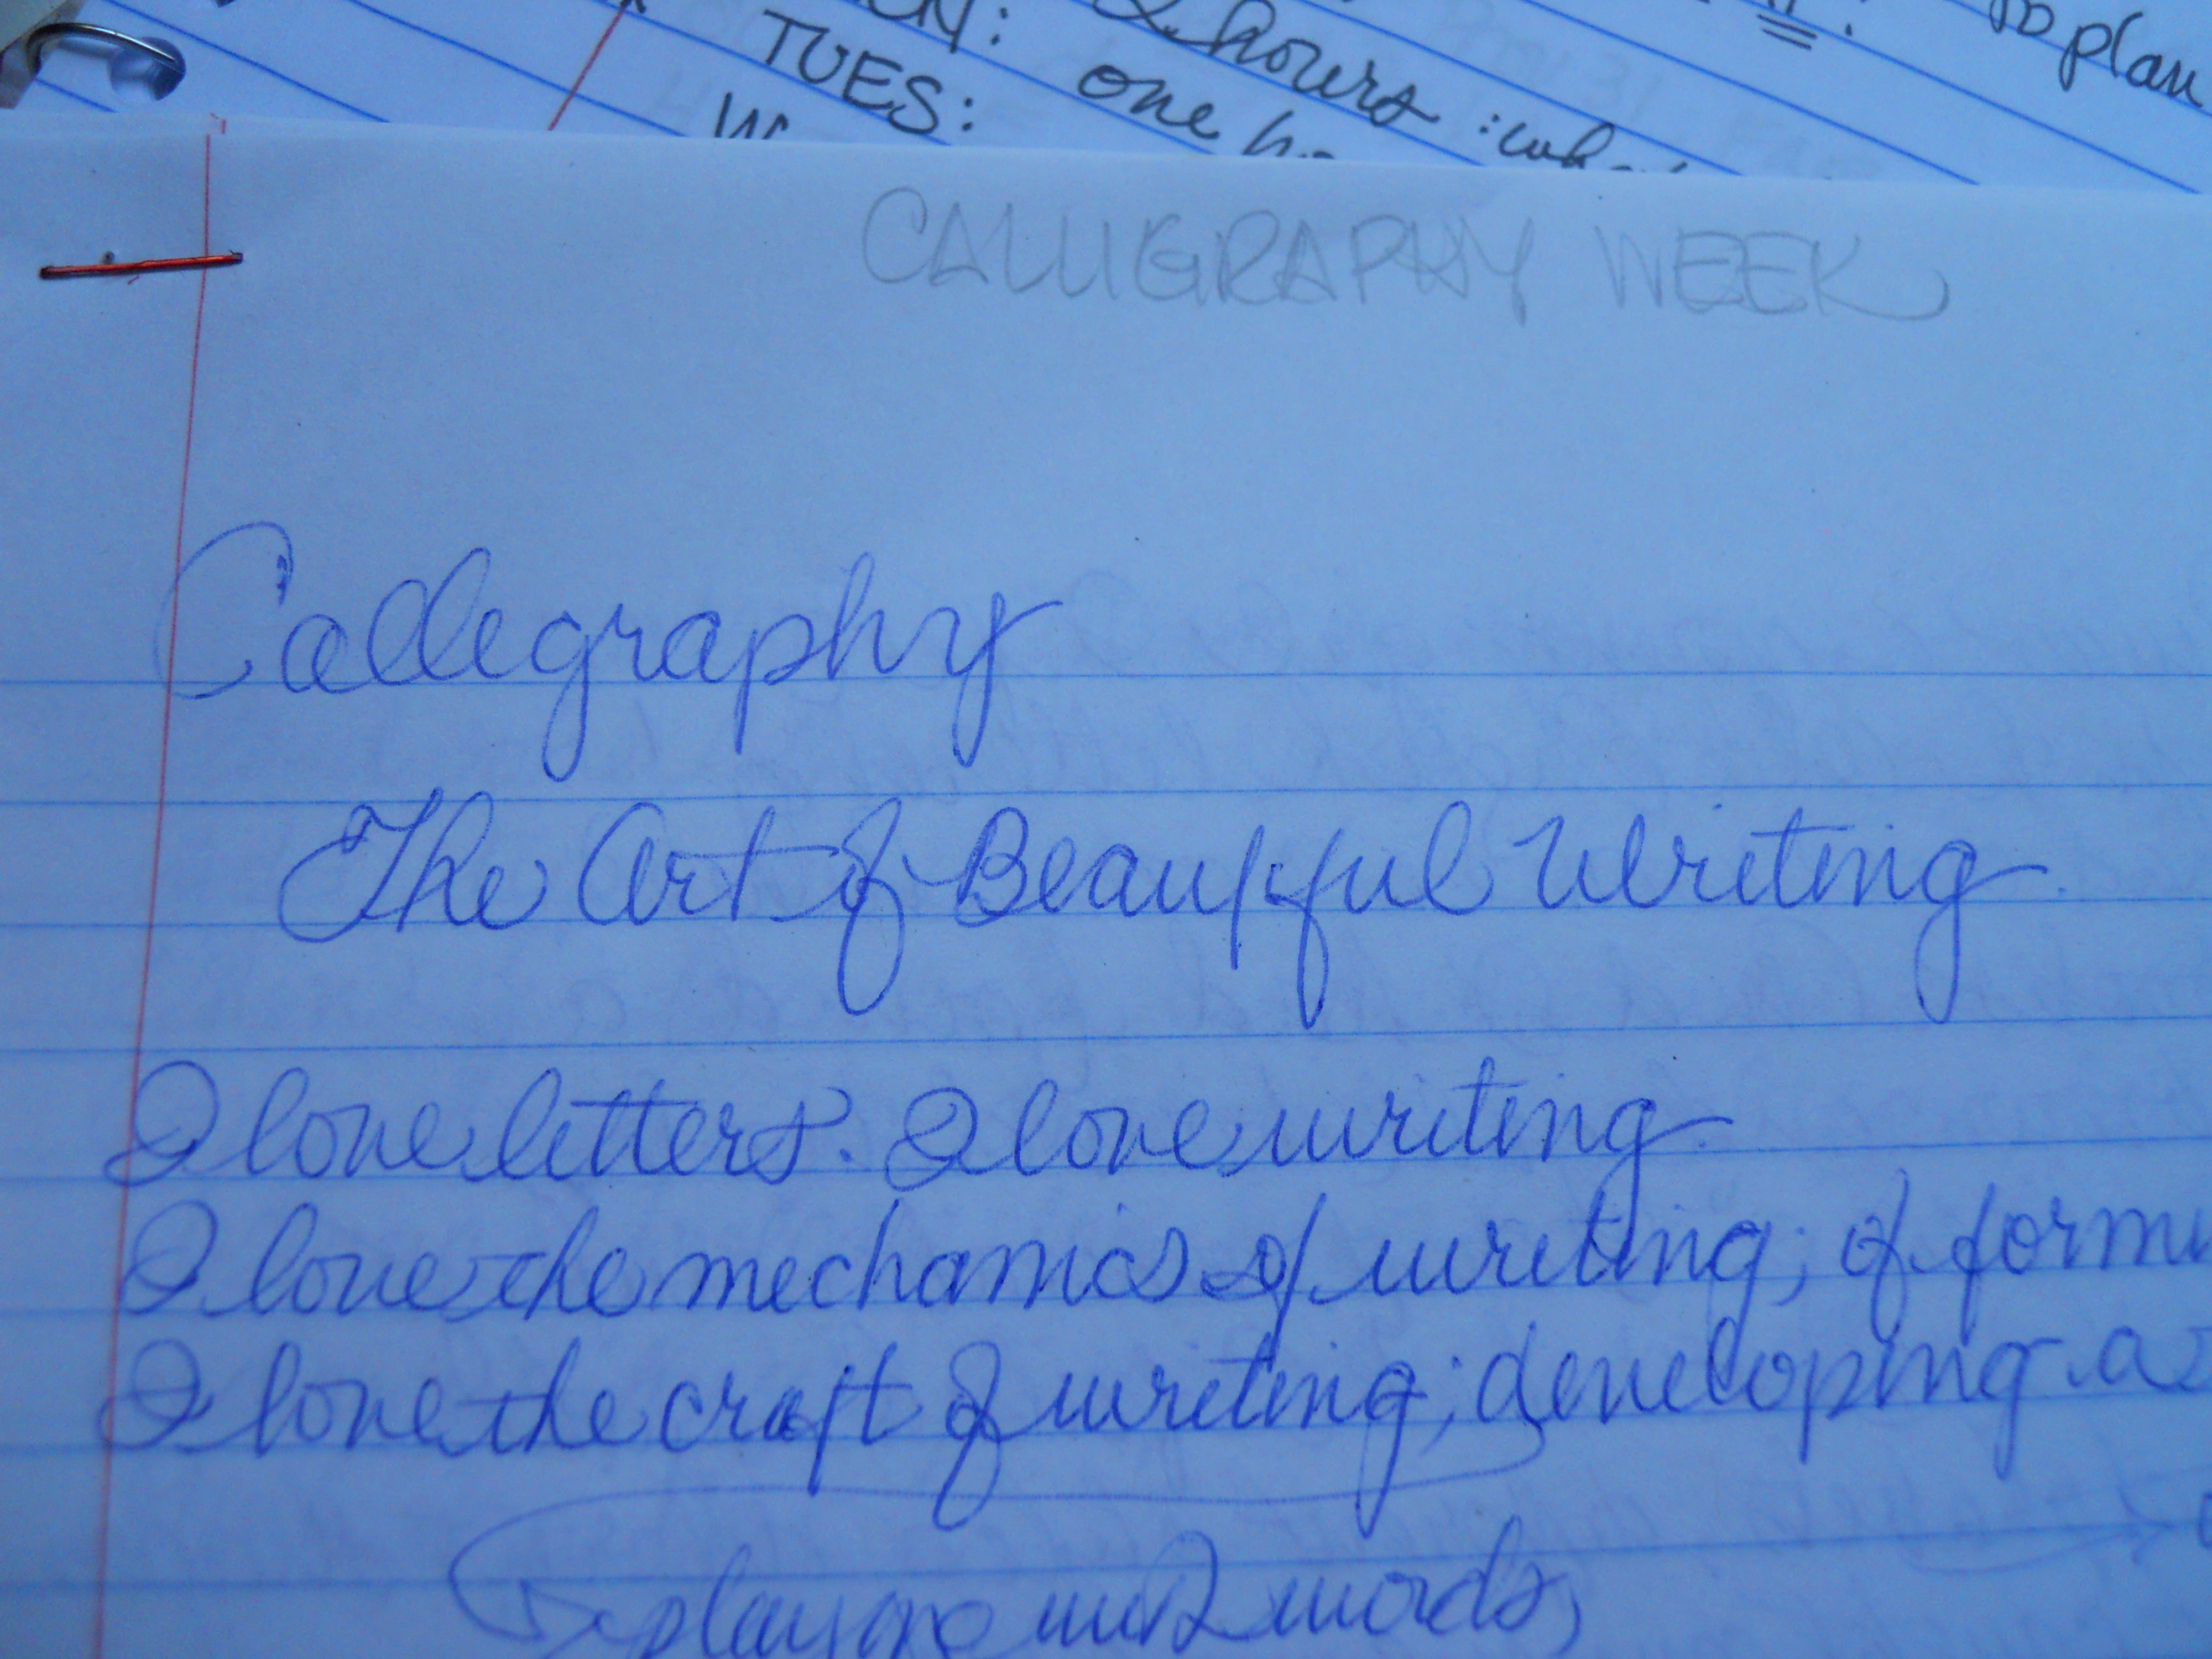 2 hours
plan
TUES: one
CALLIGRAPHY WEEK
Calligraphy
The Art of Beautiful Writing.
I love letters. I love writing.
I love the mechanics of writing; of
I love the craft of writing; developing
playing with words,